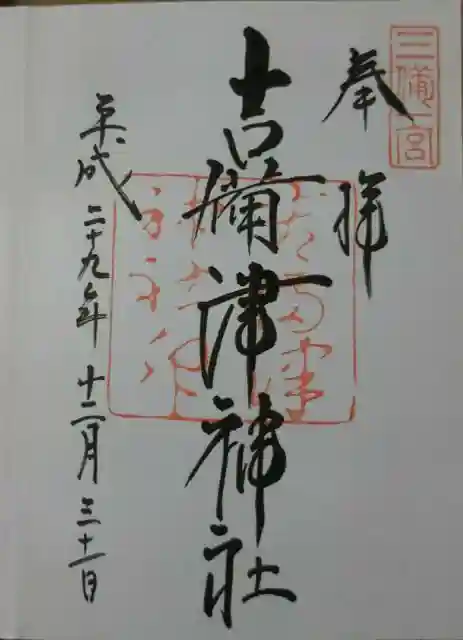 三備一宮
奉拝
吉備津神社
平成二十九年十二月三十一日